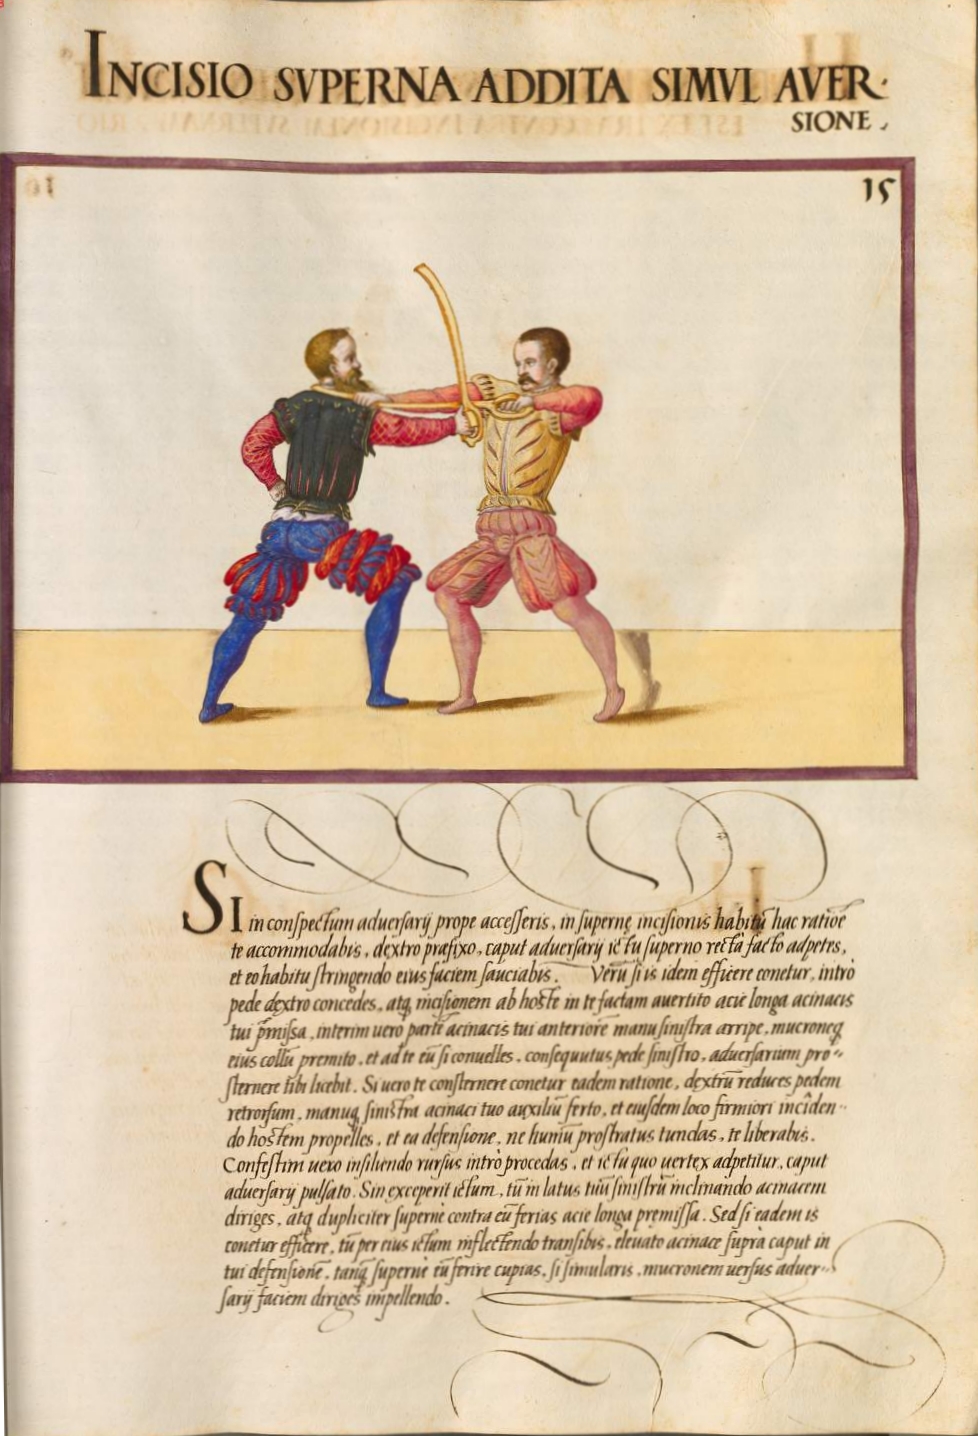 INCISIO SVPERNA ADDITA SIMVL AVER-
SIONE.
15
SI in conſpectum aduerſarij prope acceſſeris, in ſupernę inciſionis habitũ hac ratiõe
te accommodabis, dextro præfixo, caput aduerſarij ictu ſuperno recta facto adpetes,
et eo habitu ſtringendo eius faciem ſauciabis. Verũ ſi is idem efficere conetur, intro
pede dextro concedes, atq̃ inciſionem ab hoſte in te factam auertito acie longa acinacis
tui p̃miſſa, interim uero partẽ acinacis tui anteriorẽ manu ſiniſtra arripe, mucroneq̃
eius collũ premito, et ad te eũ ſi conuelles, conſequutus pede ſiniſtro, aduerſarium pro-
ſternere tibi licebit. Si uero te conſternere conetur eadem ratione, dextrũ reduces pedem
retrorſum, manuq̃ ſiniſtra acinaci tuo auxiliũ ferto, et eiuſdem loco firmiori inciden-
do hoſtem propelles, et ea defenſione, ne humũ proſtratus tundas, te liberabis.
Confeſtim uero inſiliendo rurſus intrò procedas, et ictu quo uertex adpetitur, caput
aduerſarij pulſato. Sin exceperit ictum, tũ in latus tuũ ſiniſtrũ inclinãdo acinacem
diriges, atq̃ dupliciter ſupernè contra eũ ferias acie longa pręmiſſa. Sed ſi eadem is
conetur efficere, tũ per eius ictum inflectendo tranſibis, eleuato acinace ſuprà caput in
tui defenſionẽ, tanq̃ ſupernè eũ ferire cupias, ſi ſimularis, mucronem uerſus aduer-
ſarij faciem diriges impellendo.